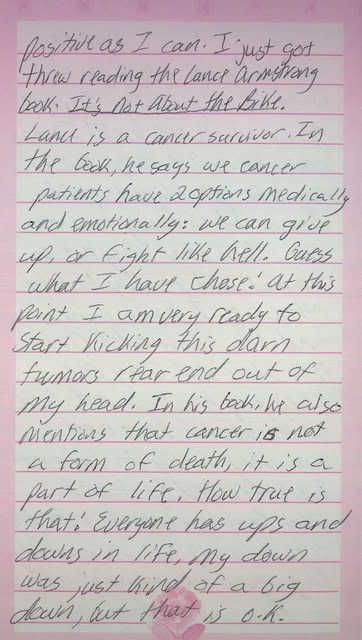 positive as I can. I just got
threw reading the Lance Armstrong
book. It's Not About the Bike.
Lance is a cancer survivor. In
the book, he says we cancer
patients have 2 options medically
and emotionally: we can give
up, or fight like hell. Guess
what I have chose! At this
point I am very ready to
start kicking this darn
tumors rear end out of
my head. In his book, he also
mentions that cancer is not
a form of death, it is a
part of life. How true is
that! Everyone has ups and
downs in life, my down
was just kind of a big
down, but that is O.K.